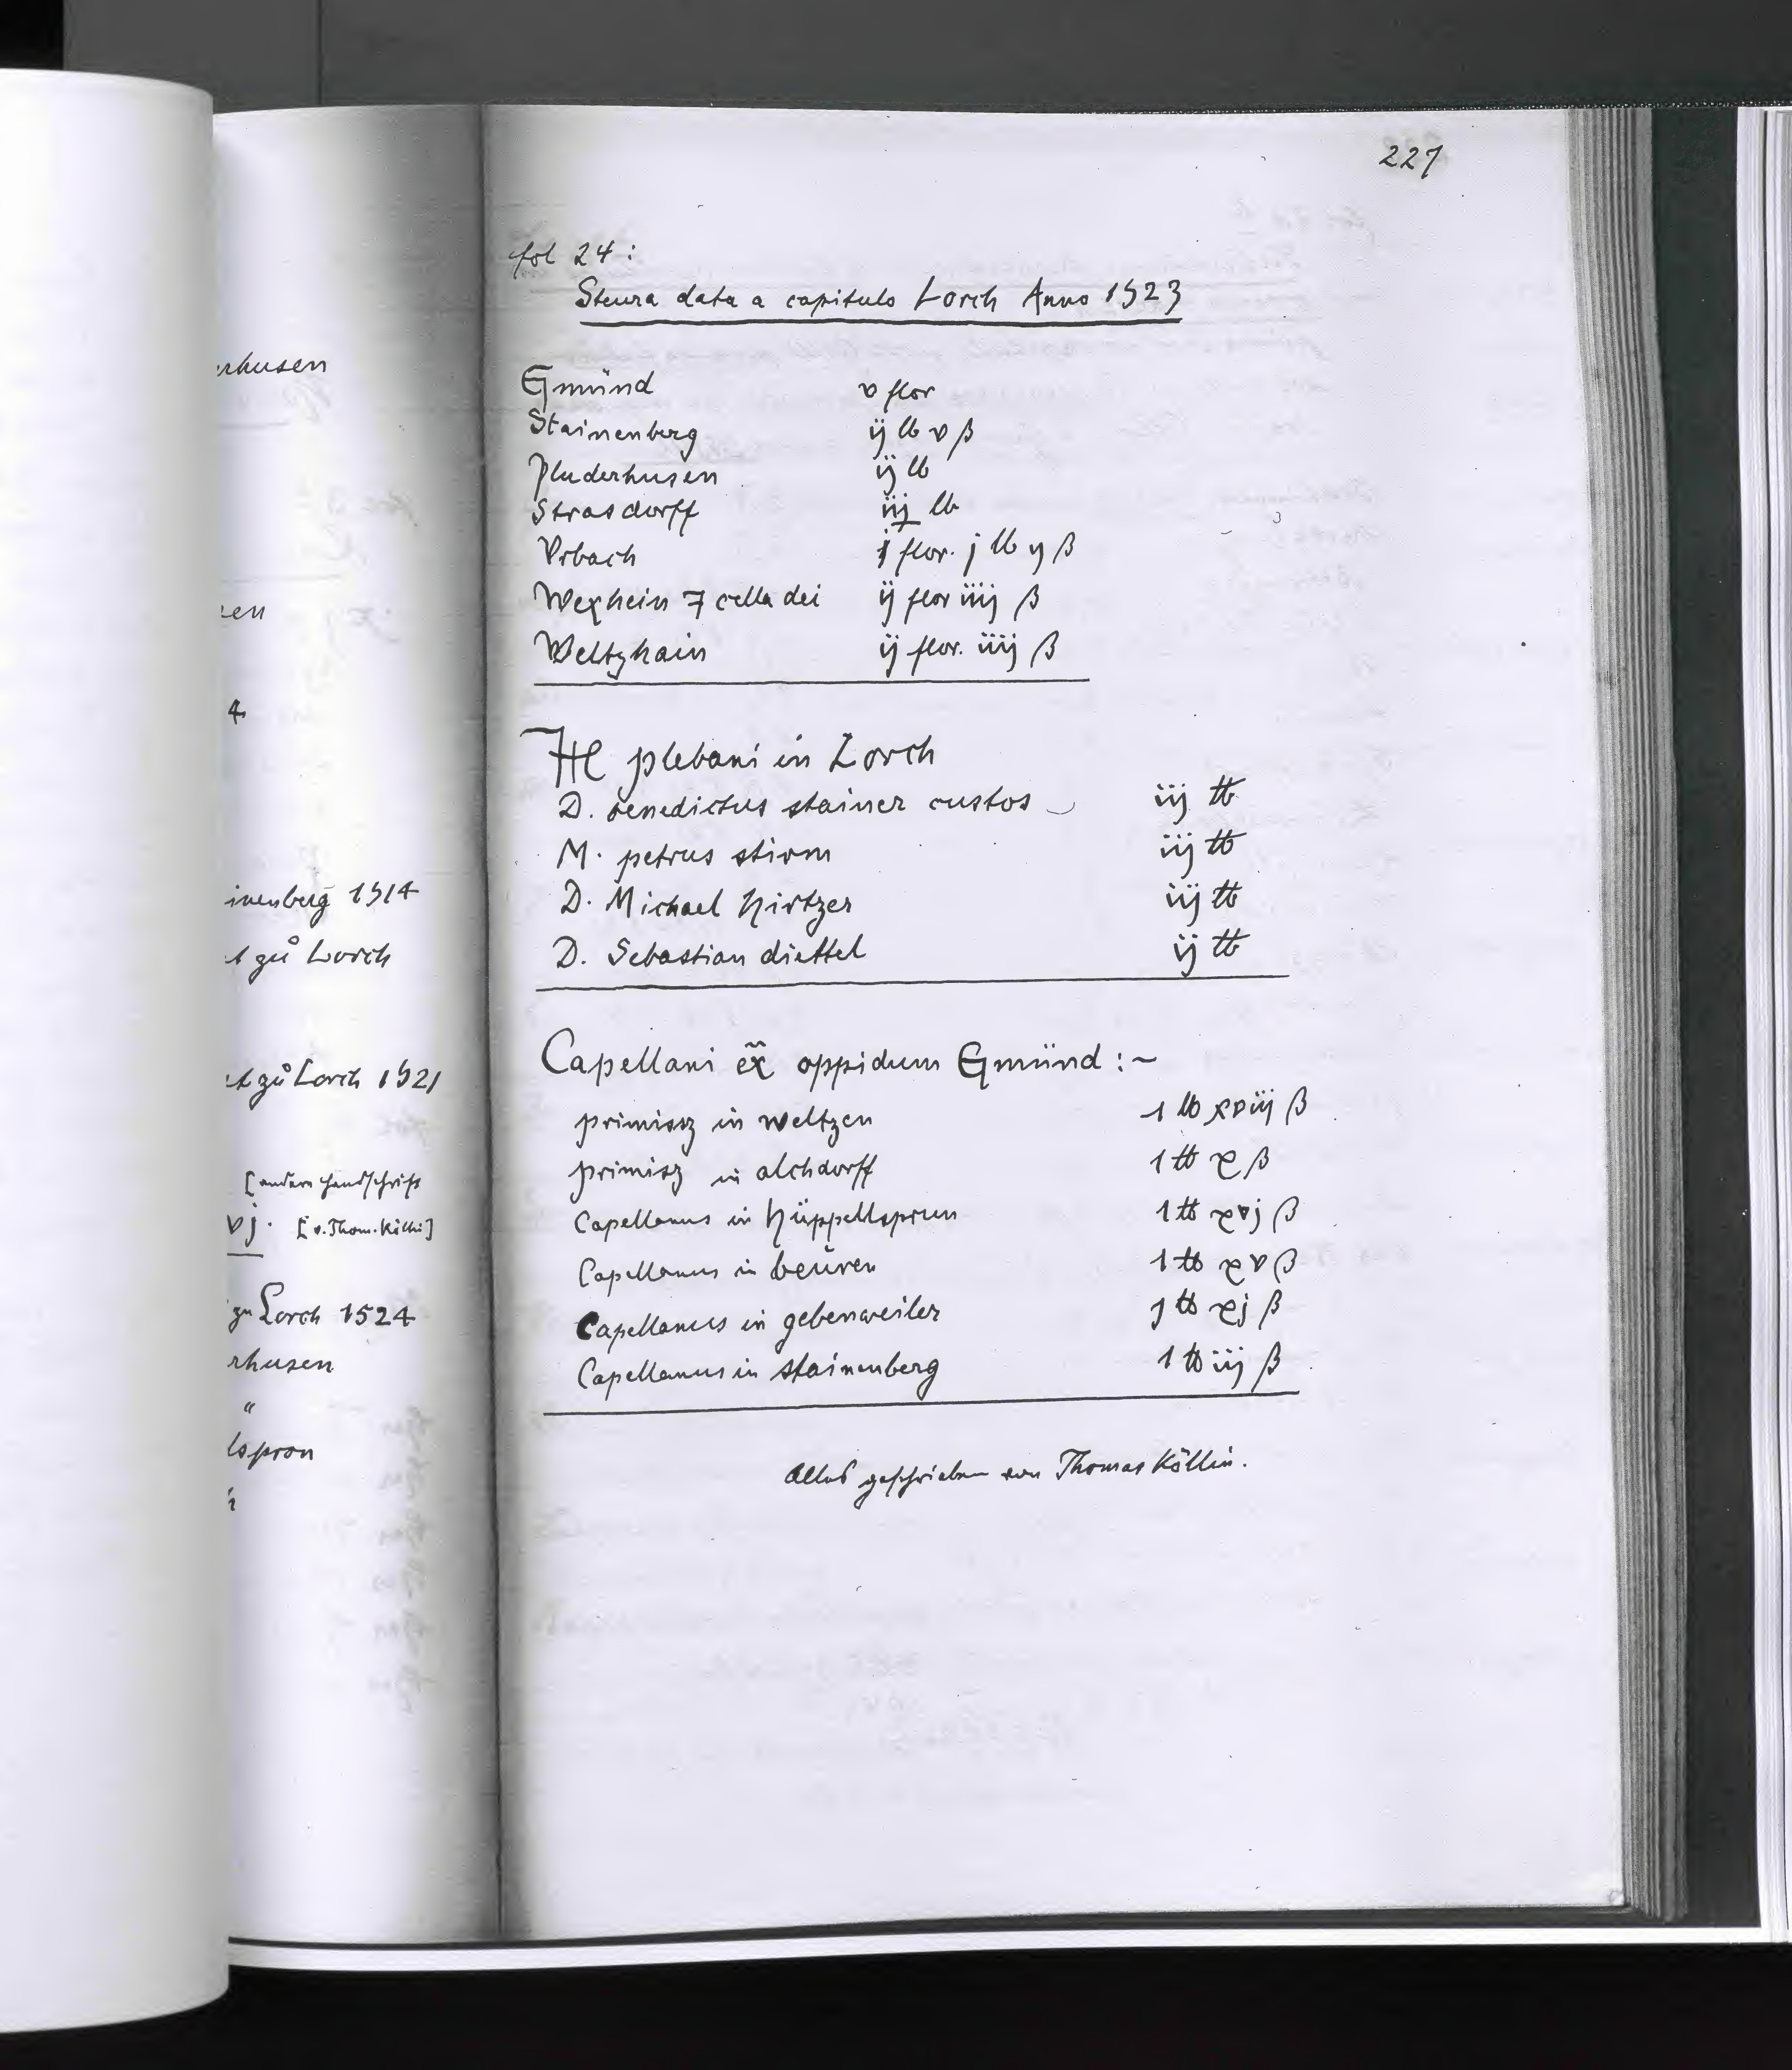 rhusen
en
4
inenberg 1514
t zů Lorch
t zů Lorch 1521
[andere Handschrift
vj. [v. Thom. Köllin]
zu Lorch 1524
rhusen
"
lspron
227
fol 24:
Steura data a capitulo Lorch Anno 1523
Gmünd v flor
Stainenberg ij lb v ß
Pluderhusen ij lb
Strasdorff iij lb
Vrbach j flor. j lb ij ß
Wexhein 7 cella dei ij flor iiij ß
Weltzhain ij flor. iiij ß
plebani in Lorch
D. benedictus stainer custos iij lb
M. petrus stirm iij lb
D. Michael hirtzer iij lb
D. Sebastian diettel ij lb
Capellani ex̃ oppidum Gmünd :~
primissz in weltzen 1 lb xviij ß
primisz in alchdorff 1 lb x ß
Capellanus in hüppellsprun 1 lb xvj ß
Capellanus in beüren 1 lb xv ß
Capellanus in gebenweiler j lb xj ß
Capellanus in stainenberg 1 lb iij ß
Alles geschrieben von Thomas Köllin.